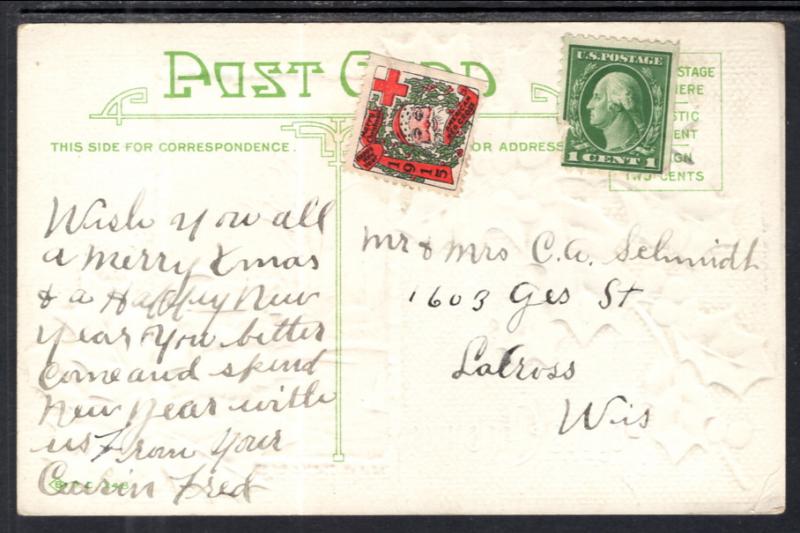 POST CARD
THIS SIDE FOR CORRESPONDENCE.
OR ADDRESS
STAGE
HERE
STIC
ENT
GN
TWO CENTS
U.S. POSTAGE
1 CENT 1
1915
Wish you all
a merry Xmas
& a Happy New
year You better
come and spend
New year with
us From your
Cousin Fred
Mr & Mrs C.A. Schmidt
1603 Ges St
LaCross
Wis